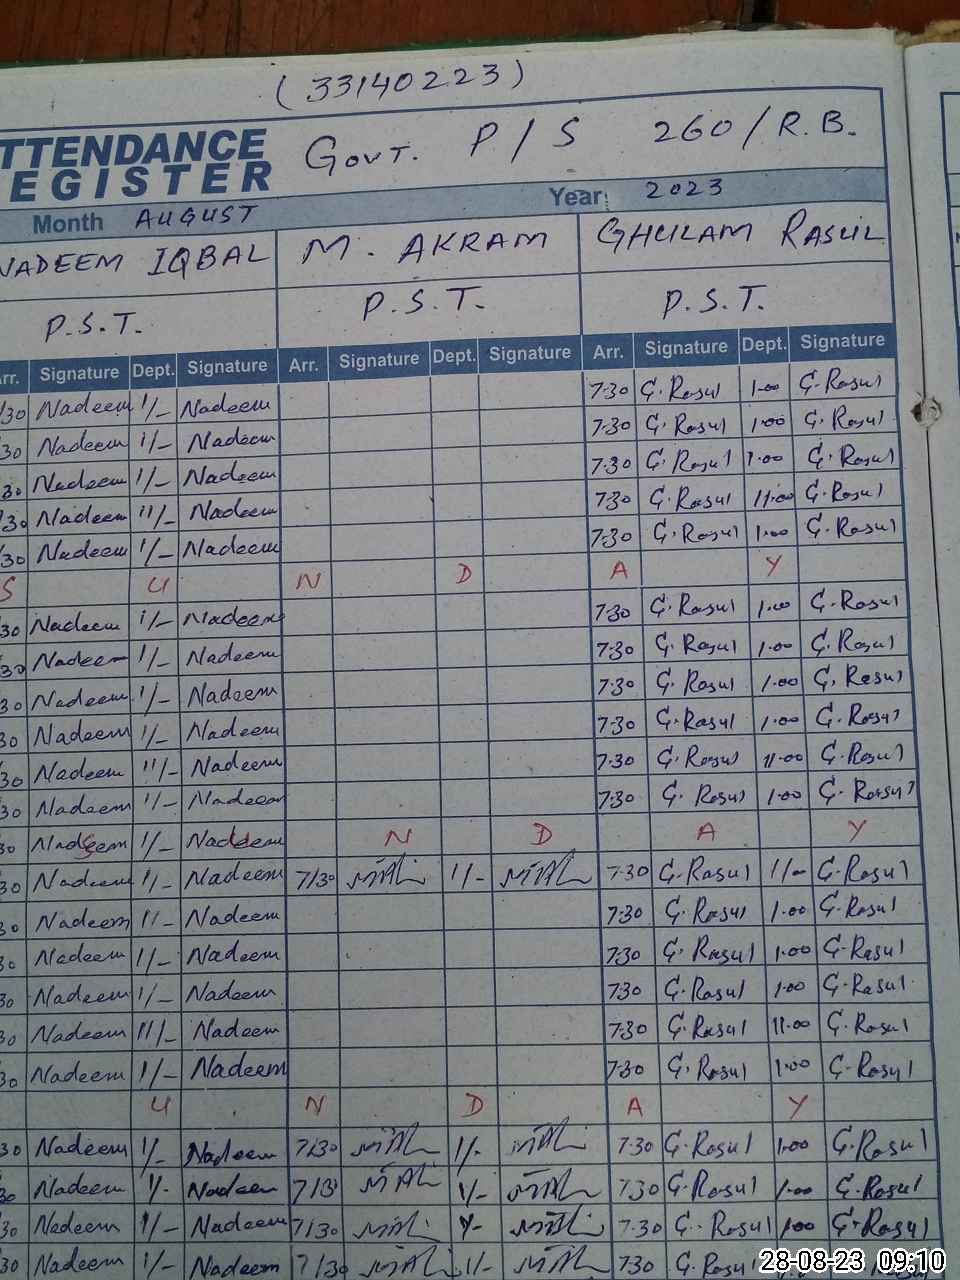 (33140223)
TTENDANCE Govt. P/S 260/R.B.
EGISTER
Month AUGUST Year: 2023
NADEEM IQBAL M. AKRAM GHULAM RASUL
P.S.T. P.S.T. P.S.T.
Arr. Signature Dept. Signature Arr. Signature Dept. Signature Arr. Signature Dept. Signature
/30 Nadeem 1/- Nadeem 7.30 G.Rasul 1.00 G.Rasul
30 Nadeem 1/- Nadeem 7.30 G.Rasul 1.00 G.Rasul
30 Nadeem 1/- Nadeem 7.30 G.Rasul 1.00 G.Rasul
/30 Nadeem 11/- Nadeem 7.30 G.Rasul 11.00 G.Rasul
/30 Nadeem 1/- Nadeem 7.30 G.Rasul 1.00 G.Rasul
S U N D A Y
30 Nadeem 1/- Nadeem 7.30 G.Rasul 1.00 G.Rasul
30 Nadeem 1/- Nadeem 7.30 G.Rasul 1.00 G.Rasul
30 Nadeem 1/- Nadeem 7.30 G.Rasul 1.00 G.Rasul
30 Nadeem 1/- Nadeem 7.30 G.Rasul 1.00 G.Rasul
30 Nadeem 11/- Nadeem 7.30 G.Rasul 11.00 G.Rasul
/30 Nadeem 1/- Nadeem 7.30 G.Rasul 1.00 G.Rasul
30 Nadeem 1/- Nadeem N D A Y
30 Nadeem 1/- Nadeem 7/30 1/- 7.30 G.Rasul G.Rasul
30 Nadeem 1/- Nadeem 7.30 G.Rasul 1.00 G.Rasul
30 Nadeem 1/- Nadeem 7.30 G.Rasul 1.00 G.Rasul
30 Nadeem 1/- Nadeem 7.30 G.Rasul 1.00 G.Rasul
30 Nadeem 11/- Nadeem 7.30 G.Rasul 11.00 G.Rasul
30 Nadeem 1/- Nadeem 7.30 G.Rasul 1.00 G.Rasul
U N D A Y
30 Nadeem 1/- Nadeem 7/30 1/- 7.30 G.Rasul 1.00 G.Rasul
30 Nadeem 1/- Nadeem 7/3 1/- 7.30 G.Rasul 1.00 G.Rasul
/30 Nadeem 1/- Nadeem 7/30 7.30 G.Rasul 1.00 G.Rasul
30 Nadeem 1/- Nadeem 7/30 1/- 7.30 G.Rasul
28-08-23 09:10